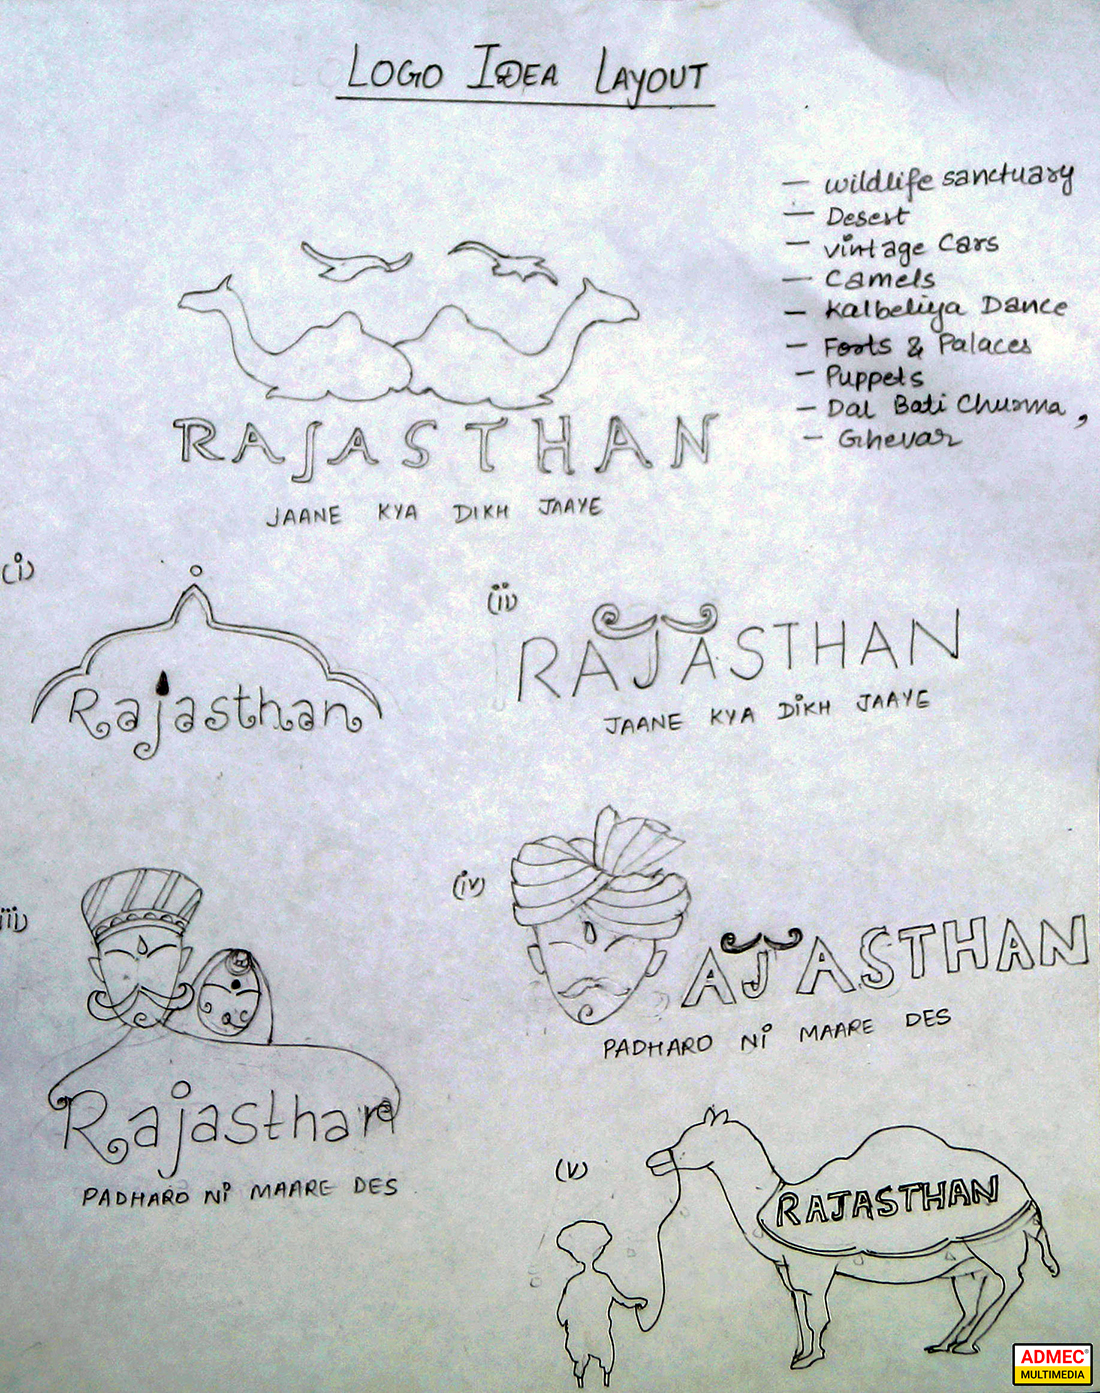 LOGO IDEA LAYOUT
— wildlife sanctuary
— Desert
— vintage Cars
— Camels
— Kalbeliya Dance
— Forts & Palaces
— Puppets
— Dal Bati Churma ,
— Ghevar
RAJASTHAN
JAANE KYA DIKH JAAYE
(i)
Rajasthan
(ii)
RAJASTHAN
JAANE KYA DIKH JAAYE
(iii)
Rajasthan
PADHARO Ni MAARE DES
(iv)
AJASTHAN
PADHARO Ni MAARE DES
(v)
RAJASTHAN
ADMEC®
MULTIMEDIA